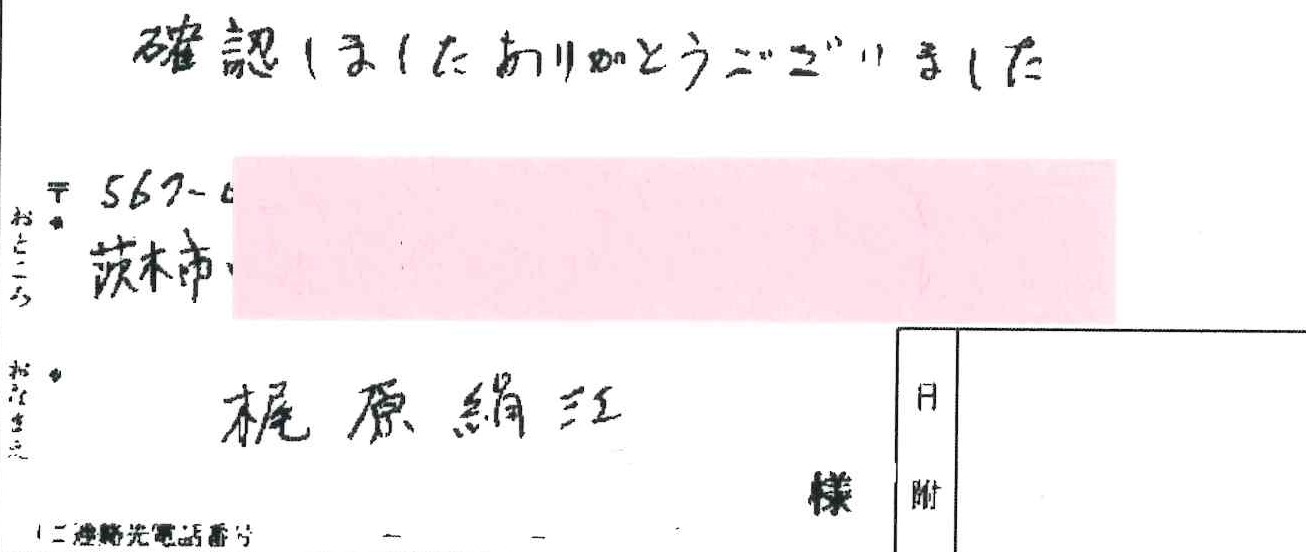 確認しましたありがとうございました
〒 567-
茨木市
おところ
梶原絹江
様
日附
ご連絡先電話番号 - -